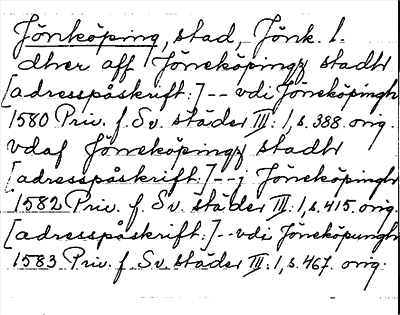 Jönköping, stad, Jönk. l.
dher aff Jöneköpingz stadh
[adresspåskrift:] -- vdi Jöneköpingh
1580 Priv. f. Sv. städer III: 1, s. 388. orig.
vdaf Jöneköpingz stadh
[adresspåskrift:] -- j Jöneköpingh
1582 Priv. f. Sv. städer III: 1, s. 415. orig.
[adresspåskrift:] -- vdi Jöneköpungh
1583 Priv. f. Sv. städer III: 1, s. 467. orig.